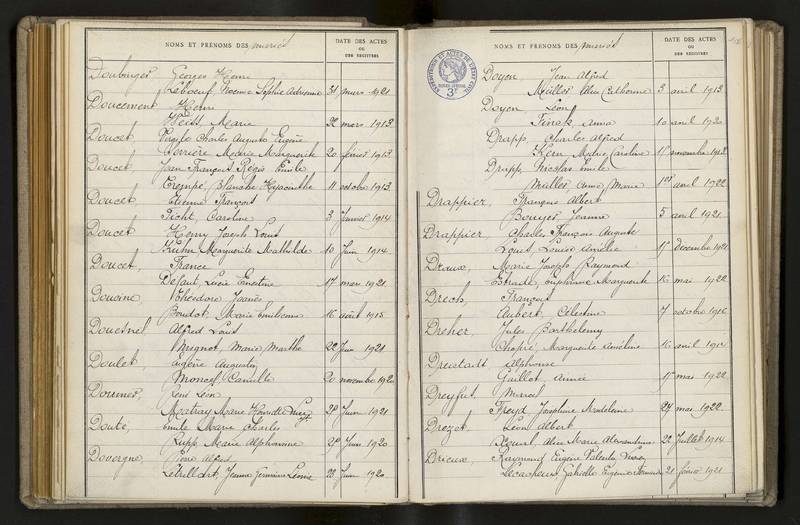 NOMS ET PRÉNOMS DES mariés
DATE DES ACTES
OU
DES REGISTRES
Doubinger Georges Henri
Leboeuf Noemie Sophie Adrienne 31 mars 1921
Doucement Henri
Weist Marie 22 mars 1913
Doucet, Virgile Charles Auguste Eugène
Marguerite 20 février 1913
Doucet, Jean François Régis Emile
Crompe, Blanche Hyacinthe 11 octobre 1913
Doucet Etienne François
Picht, Caroline 3 Janvier 1914
Doucet Henry Joseph Louis
Kuhn Marguerite Mathilde 10 Juin 1914
Doucet, France
Défaut, Lucie Ernestine 17 mars 1921
Douine, Théodore
Boudot, Marie Emilienne 16 août 1915
Douesnel Alfred Louis
Mugnot, Marie Marthe 22 Juin 1921
Doulet, Eugène Augustin
Moncel, Camille 20 novembre 1920
Doumer, René Léon
Marie Henriette 28 Juin 1921
Douté, Emile Marie Charles
Zupp Marie Alphonsine 29 Juin 1920
Douvergne, Alfred
Létillart, Jeanne Germaine Léonie 28 Juin 1920
NOMS ET PRÉNOMS DES mariés
DATE DES ACTES
OU
DES REGISTRES
Doyen, Jean Alfred
Müller Catherine 3 avril 1913
Doyen Léon
Finck Anna 10 avril 1920
Drapp, Charles Alfred
Kern Caroline novembre 1912
Drapp, Nicolas Emile
Müller, Anna Marie 1er avril 1922
Drappier, François Albert
Bouyer Jeanne 5 avril 1921
Drappier, Charles François Auguste
Louis, Louise Amélie 17 décembre 1921
Marie Joseph Raymond
Marguerite 16 mai 1922
Drech, François
Aubert, Célestine 7 octobre
Dreher, Jules Barthelemy
Marguerite 16 avril
Alphonse
Gaillot Année 17 mai 1922
Dreyfus, Marcel
Freyd Joséphine Madeleine 24 mai 1922
Drozot, Léon Albert
Marie Alexandrine 22 Juillet 1914
Drieux, Raymond Eugène Valentin
Gabrielle Eugénie 21 février 1921